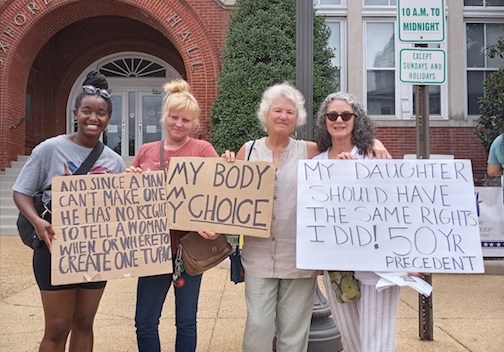 XFOR
HALL
10 A.M. TO
MIDNIGHT
EXCEPT
SUNDAYS AND
HOLIDAYS
AND SINCE A MAN
CAN'T MAKE ONE
HE HAS NO RIGHT
TO TELL A WOMAN
WHEN OR WHERE TO
CREATE ONE TUPAC
MY BODY
MY CHOICE
MY DAUGHTER
SHOULD HAVE
THE SAME RIGHTS
I DID! 50 YR
PRECEDENT